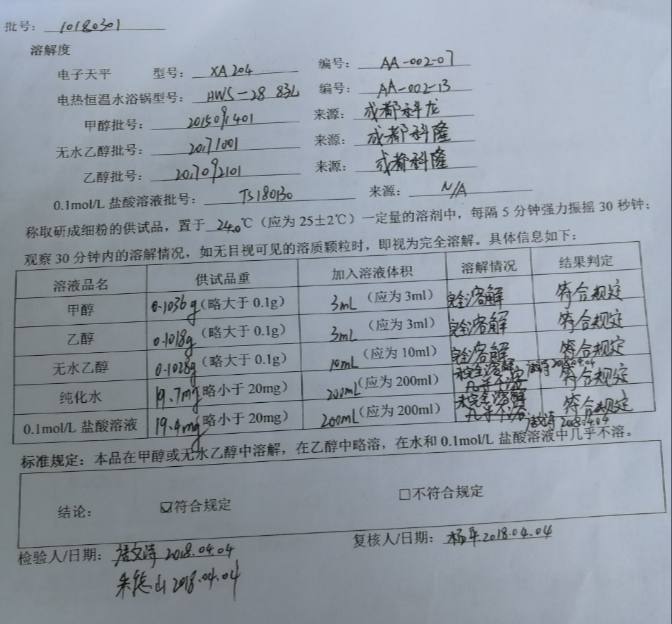 批号: 10180301
溶解度
电子天平 型号: XA204 编号: AA-002-07
电热恒温水浴锅型号: HWS-28 编号: AA-002-13
甲醇批号: 2015091401 来源: 成都科龙
无水乙醇批号: 20171001 来源: 成都科隆
乙醇批号: 2017092101 来源: 成都科隆
0.1mol/L 盐酸溶液批号: TS180130 来源: N/A
称取研成细粉的供试品，置于 24.0℃（应为 25±2℃）一定量的溶剂中，每隔 5 分钟强力振摇 30 秒钟；
观察 30 分钟内的溶解情况，如无目视可见的溶质颗粒时，即视为完全溶解。具体信息如下：
溶液品名 供试品重 加入溶液体积 溶解情况 结果判定
甲醇 0.1036g（略大于 0.1g） 3mL（应为 3ml） 完全溶解 符合规定
乙醇 0.1018g（略大于 0.1g） 3mL（应为 3ml） 完全溶解 符合规定
无水乙醇 0.1028g（略大于 0.1g） 10mL（应为 10ml） 完全溶解 符合规定
纯化水 19.7mg（略小于 20mg） 200mL（应为 200ml） 未完全溶解 几乎不溶 2018.04.04 符合规定
0.1mol/L 盐酸溶液 19.4mg（略小于 20mg） 200mL（应为 200ml） 未完全溶解 几乎不溶 2018.04.04 符合规定
标准规定：本品在甲醇或无水乙醇中溶解，在乙醇中略溶，在水和 0.1mol/L 盐酸溶液中几乎不溶。
结论： ☑符合规定 □不符合规定
检验人/日期: 2018.04.04 复核人/日期: 杨平 2018.04.04
朱德山 2018.04.04